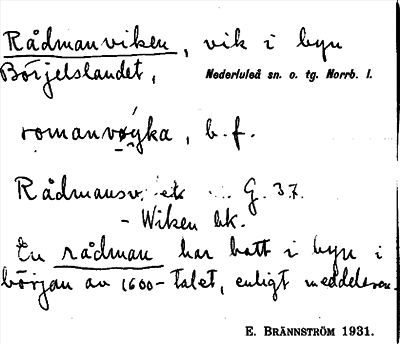 Rådmanviken, vik i byn
Börjelslandet, Nederluleå sn. o. tg. Norrb. l.
romanvøyka, b. f.
Rådmansv. ek G. 37.
- Wiken hk.
En rådman har bott i byn i
början av 1600-talet, enligt meddelaren.
E. BRÄNNSTRÖM 1931.